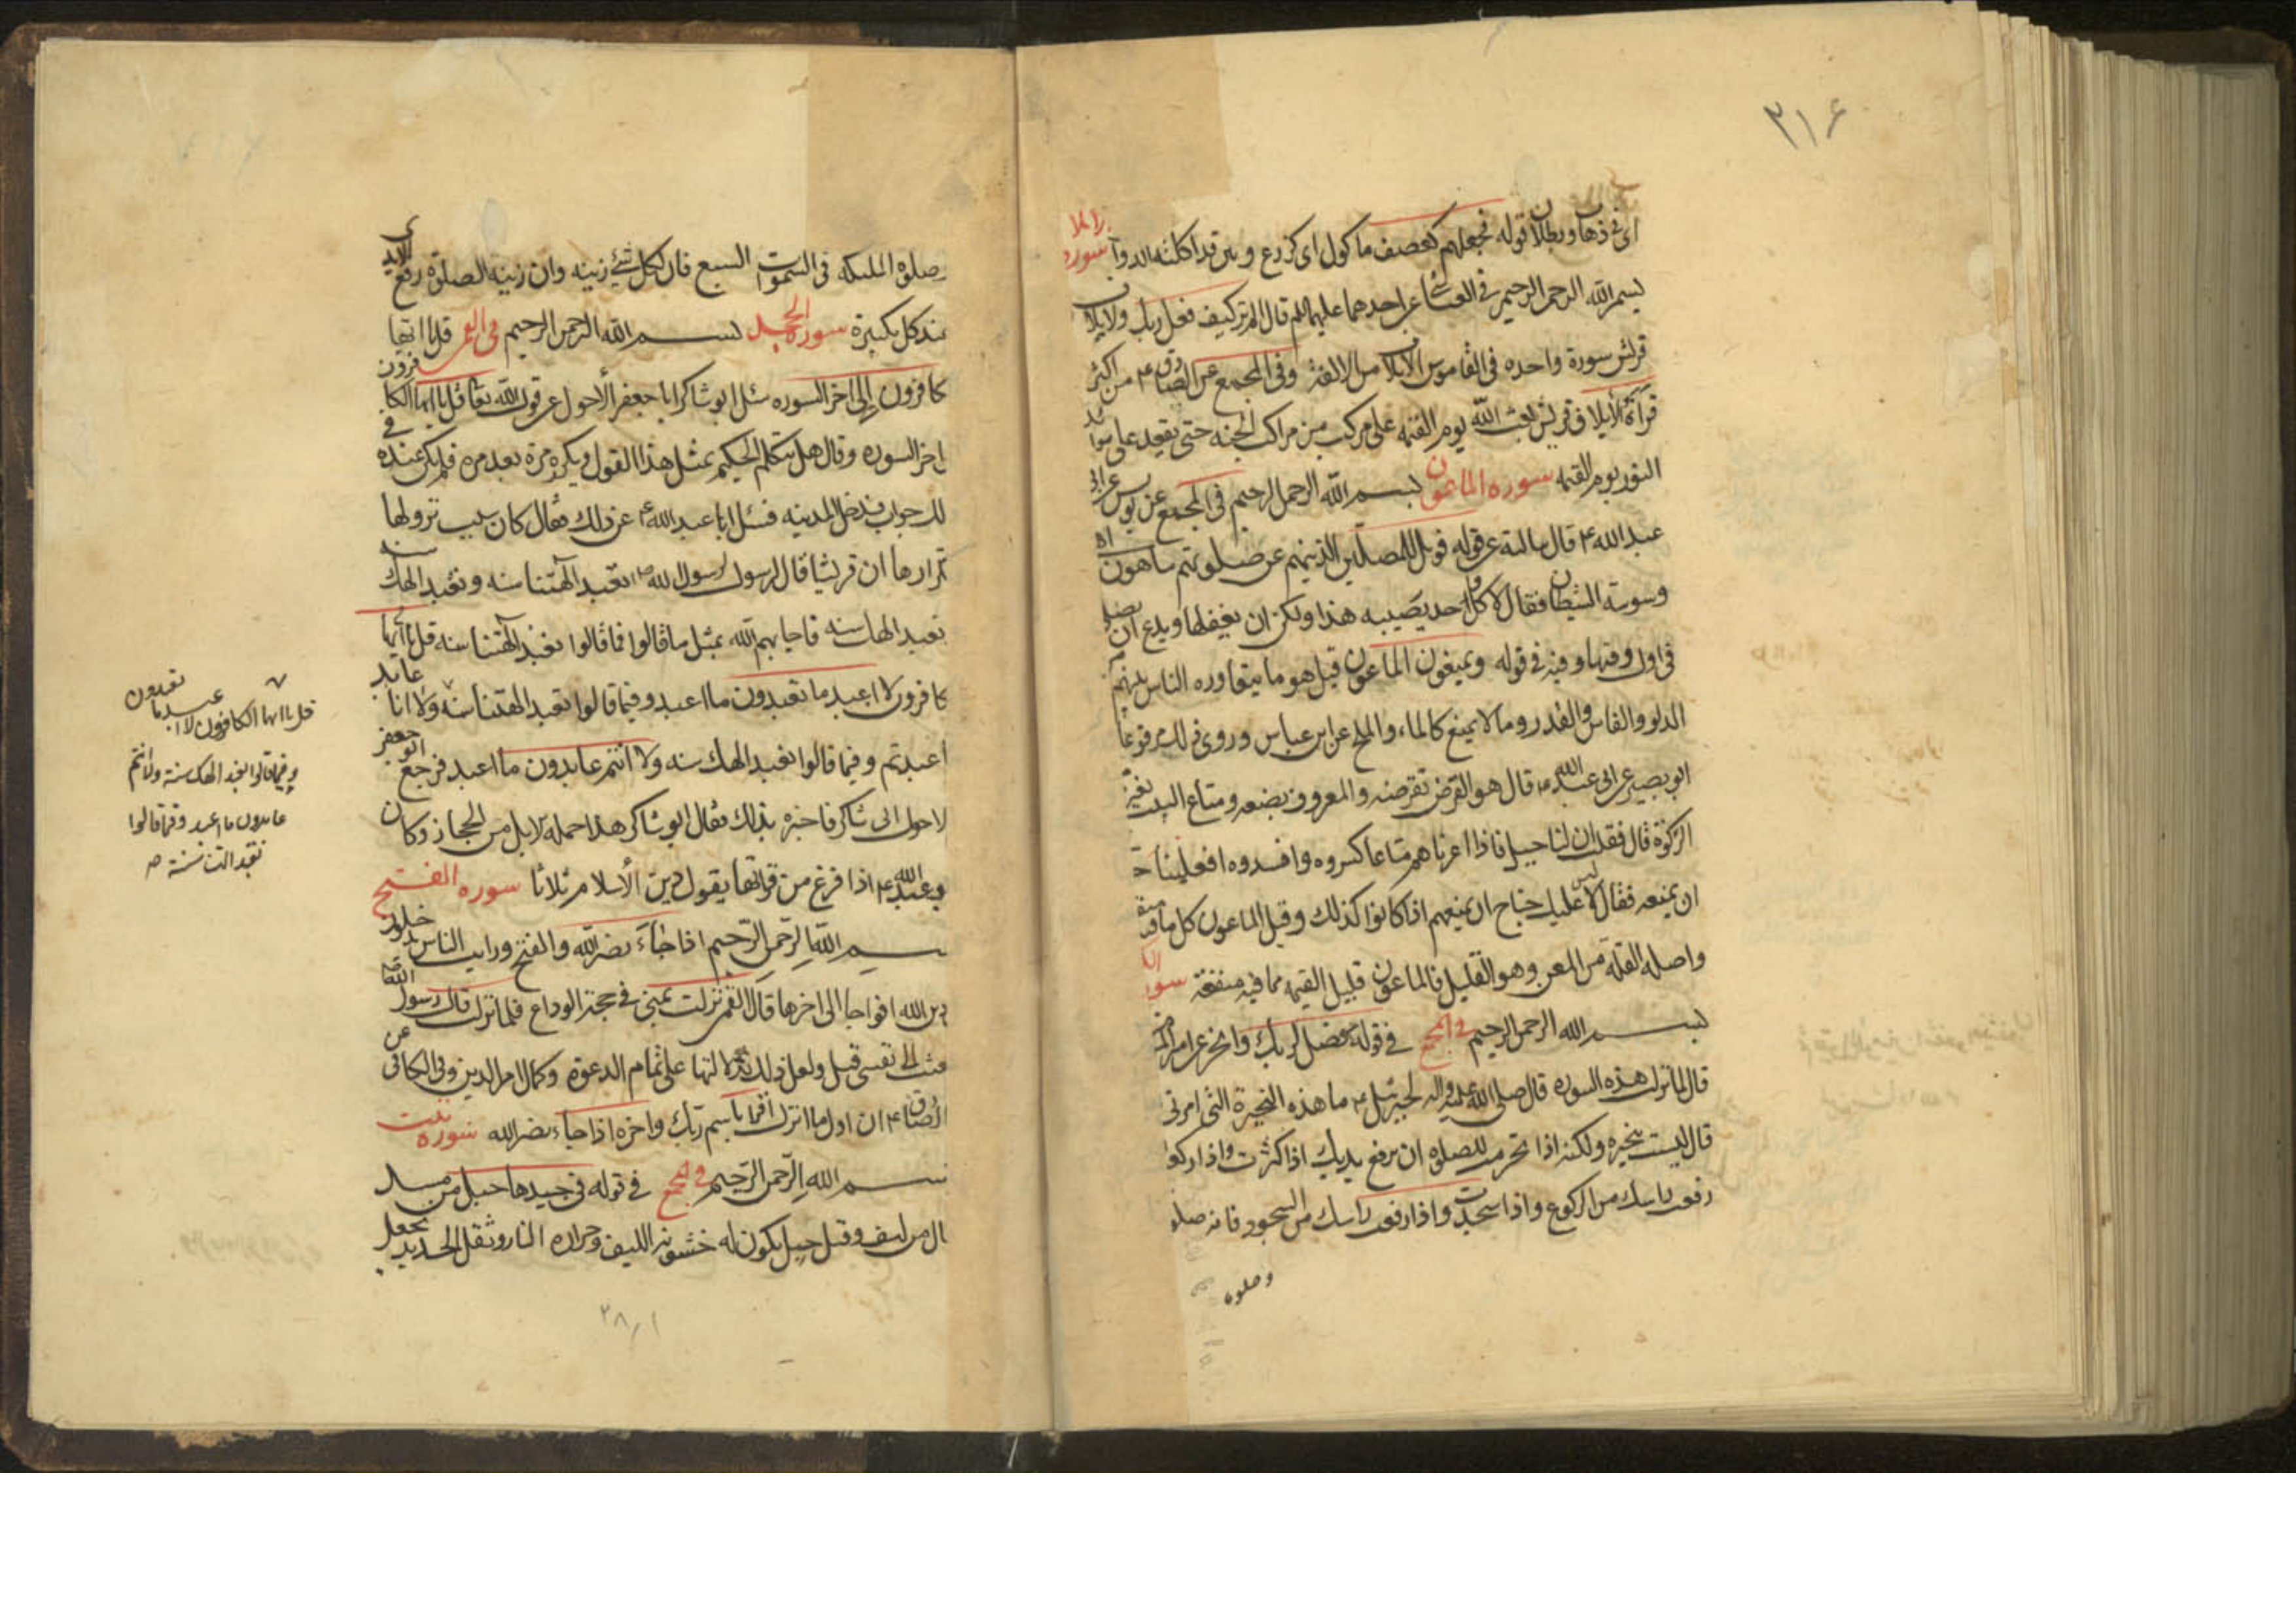 ٣١۶
اى فى ذهاب وبطلان قوله فجعلهم كعصف ماكول اى كزرع وتبن قد اكلته الدواب سورة
بسم الله الرحمن الرحيم فى العياشى عن احدهما عليهما السلم قال الم تر كيف فعل ربك ولايلاف
قريش سورة واحده فى القاموس الايلاف من الالفة وفى المجمع عن الصادق ع من اكثر
قرائة لايلاف قريش بعثه الله يوم القيمه على مركب من مراكب الجنه حتى يقعد على موائد
النور يوم القيمه سوره الماعون بسم الله الرحمن الرحيم فى المجمع عن يونس عن ابى
عبد الله ع قال سالته عن قوله فويل للمصلين الذينهم عن صلوتهم ساهون اه
وسوسة الشيطان فقال لا كل احد يصيبه هذا ولكن ان يغفلها ويدع ان يصلى
فى اول وقتها وفيه فى قوله ويمنعون الماعون قيل هو ما يتعاوره الناس بينهم
الدلو والفاس والقدر وما لا يمنع كالماء والملح عن ابن عباس وروى ذلك مرفوعا
ابو بصير عن ابى عبد الله ع قال هو القرض تقرضه والمعروف يضعه ومتاع البيت يعيره
الزكوة قال فقلت ان لنا جيرانا اذا اعرناهم متاعا كسروه وافسدوه افعلينا جناح
ان يمنعه فقال لا ليس عليك جناح ان تمنعهم اذا كانوا كذلك وقيل الماعون كل ما فيه منفعة
واصله القلة من المعن وهو القليل فالماعون قليل القيمه مما فيه منفعة سورة
بسم الله الرحمن الرحيم فى المجمع فى قوله فصل لربك وانحر عن امير المؤ
قال لما نزلت هذه السوره قال صلى الله عليه واله لجبرئيل ع ما هذه النحيرة التى امرنى
قال ليست بنحيره ولكنه اذا تحرمت للصلوة ان ترفع يديك اذا كبرت واذا ركعت
رفعت راسك من الركوع واذا سجدت واذا رفعت راسك من السجود فانه صلو
وصلوة
صلوة الملئكه فى السموات السبع فان لكل شئ زينه وان زينه الصلوة رفع الايدى
عند كل تكبيرة سورة الجحد بسم الله الرحمن الرحيم فى القمى قل يا ايها
كافرون الى اخر السوره سئل ابو شاكر ابا جعفر الاحول عن قول الله تعالى قل يا ايها الكافرون
اخر السوره وقال هل يتكلم الحكيم بمثل هذا القول ويكرره مرة بعد مره فلم يكن عنده فى
لك جواب فدخل المدينه فسئل ابا عبد الله ع عن ذلك فقال كان سبب نزولها
تكرارها ان قريشا قال لرسول الله ص تعبد الهتنا سنه ونعبد الهك سنه
تعبد الهك سنه فاجابهم الله بمثل ما قالوا فقالوا تعبد الهتنا سنه قل يا ايها
كافرون لا اعبد ما تعبدون ما اعبد وفيما قالوا تعبد الهتنا سنه ولا انا عابد
اعبدتم وفيما قالوا نعبد الهك سنه ولا انتم عابدون ما اعبد فرجع ابو جعفر
لاحول الى شاكر فاخبره بذلك فقال ابو شاكر هذا حمله الابل من الحجاز وكان
وعبد الله ع اذا فرغ من قرائتها يقول دين الاسلام ثلاثا سوره الفتح
بسم الله الرحمن الرحيم اذا جاء نصر الله والفتح ورايت الناس يدخلون
دين الله افواجا الى اخرها قال القمى نزلت بمنى فى حجة الوداع فلما نزلت قال رسول الله ص
نعيت الى نفسى قيل ولعل ذلك لدلالتها على تمام الدعوة وكمال امر الدين وفى الكافى عن
الصادق ع ان اول ما انزل اقرا باسم ربك واخره اذا جاء نصر الله سوره تبت
بسم الله الرحمن الرحيم فى المجمع فى قوله فى جيدها حبل من مسد
ال من ليف وقيل حبل يكون له خشونة الليف وحرارة النار وثقل الحديد يجعل
قل يا ايها الكافرون لا اعبد ما تعبدون
وفيما قالوا نعبد الهك سنة ولا انتم
عابدون ما اعبد وفيما قالوا
تعبد الهتنا سنة ص
٢٨١